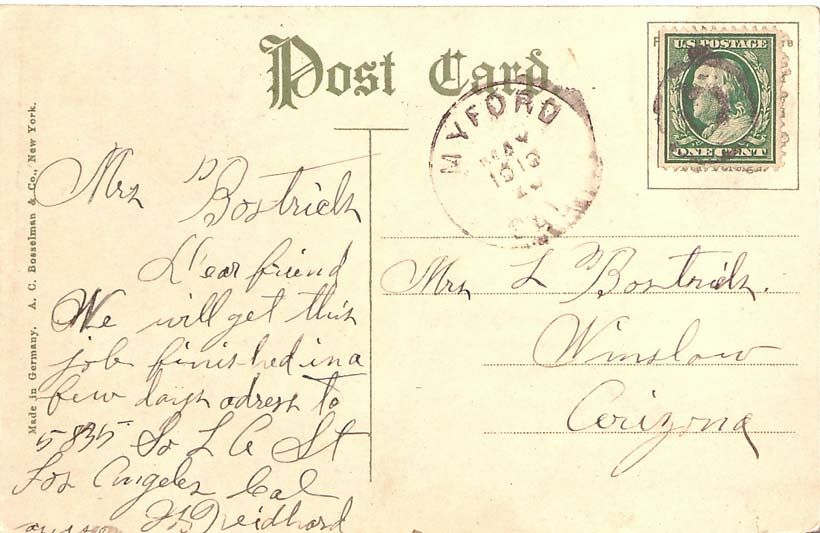 Post Card
U.S. POSTAGE
ONE CENT
MYFORD
MAY
CAL
Made in Germany. A. C. Bosselman & Co., New York.
Mrs Bostrich
Dear friend
We will get this
job finished in a
few days adress to
5835 So L A St
Los Angeles Cal
Mrs L Bostrich.
Winslow
Arizona